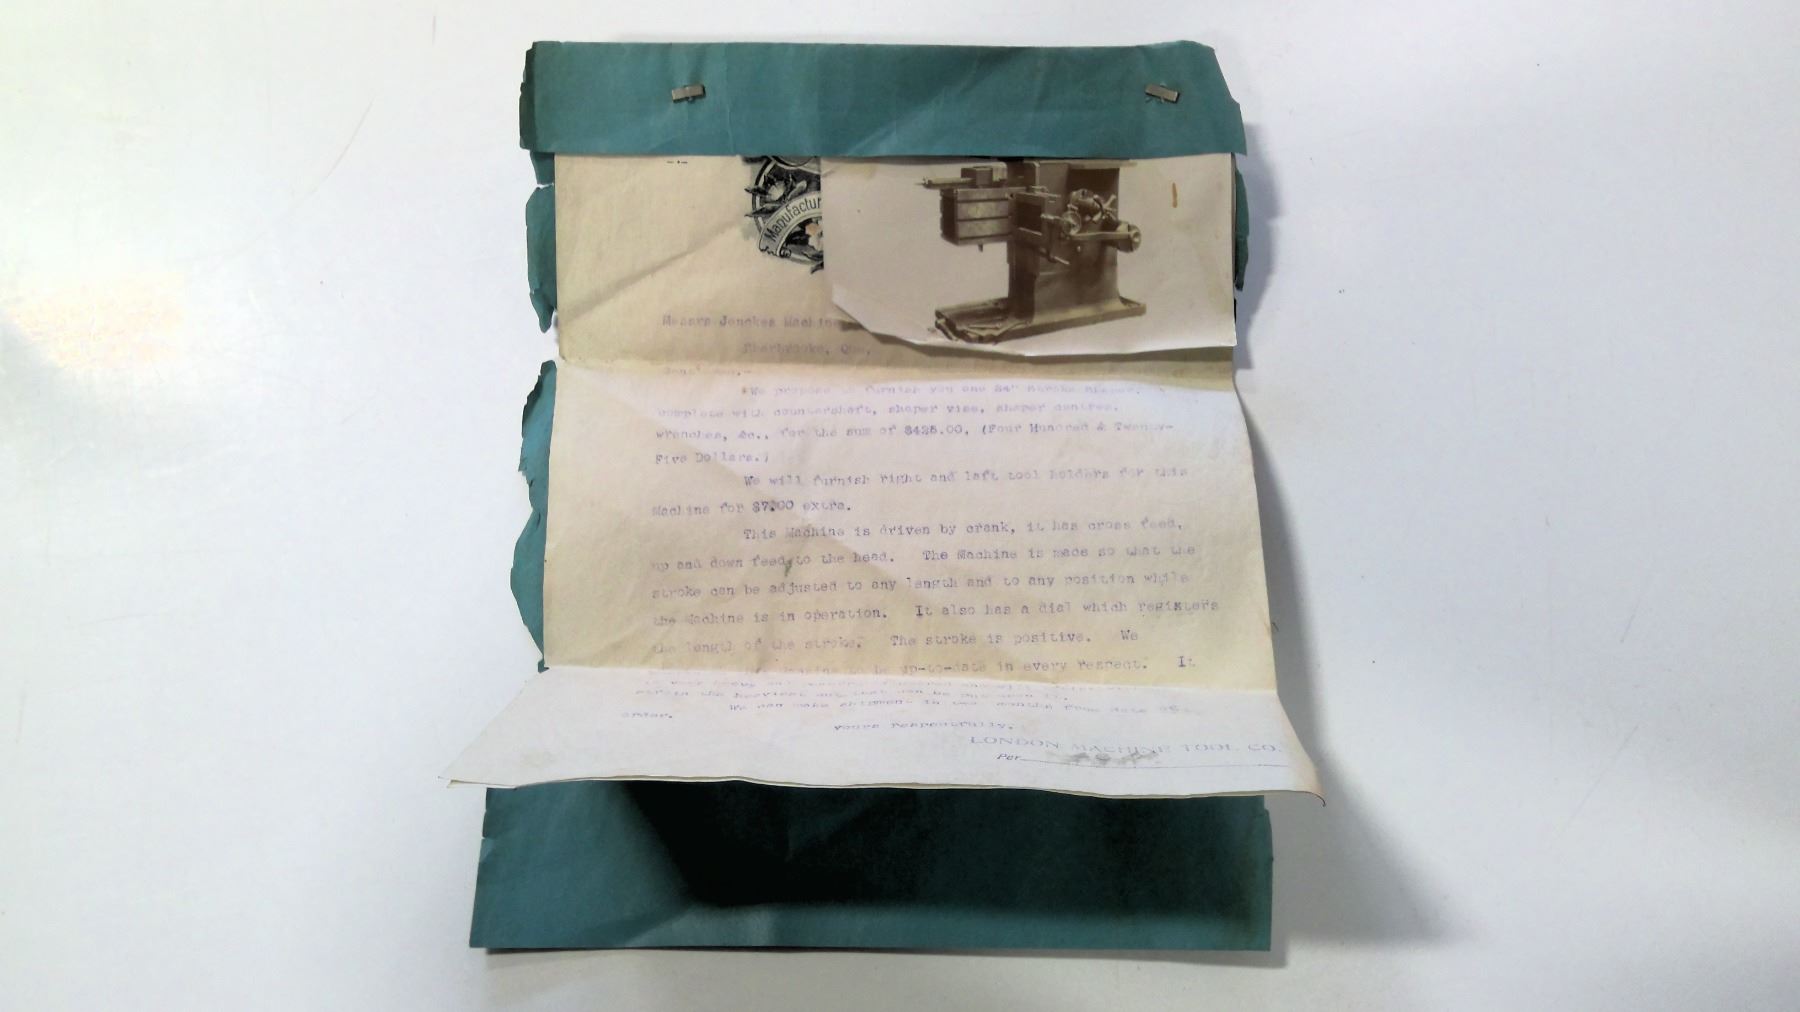 Manufactur
Messrs Jenckes Machine
Sherbrooke, Que,
Gentlemen,-
We propose to furnish you one 24" stroke shaper,
complete with countershaft, shaper vise, shaper centres,
wrenches, &c., for the sum of $425.00, (Four Hundred & Twenty-
Five Dollars.)
We will furnish right and left tool holders for this
Machine for $7.00 extra.
This Machine is driven by crank, it has cross feed,
up and down feed to the head. The Machine is made so that the
stroke can be adjusted to any length and to any position while
the Machine is in operation. It also has a dial which registers
the length of the stroke. The stroke is positive. We
to be up-to-date in every respect. It
is very heavy and
the heaviest cut that can be put upon it.
We can make shipment in two months from date of
order.
Yours respectfully,
LONDON MACHINE TOOL CO.
Per